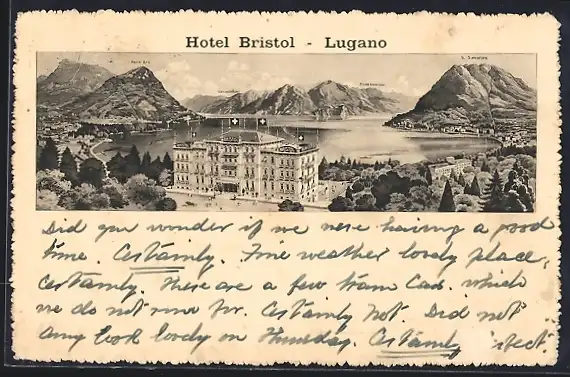 Hotel Bristol - Lugano
Did you wonder if we were having a good
time. Certainly. Fine weather lovely place,
Certainly. There are a few tram cars. which
we do not run for. Certainly not. Did not
Amy look lovely on Thursday. Certainly